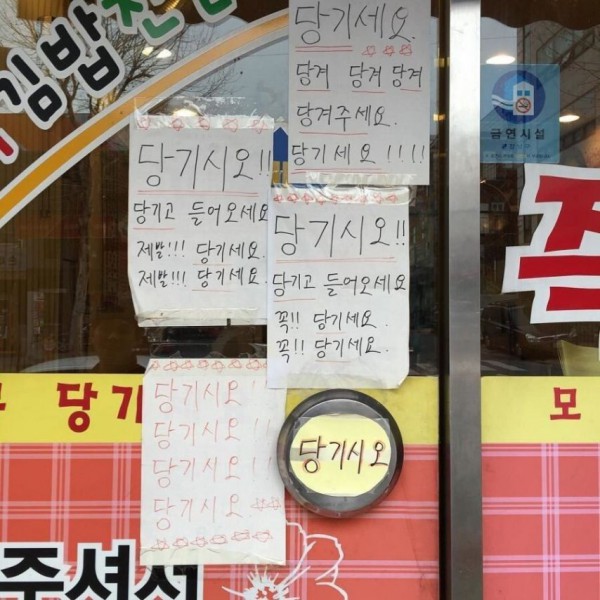 김밥천
당기세요.
당겨 당겨 당겨
당겨주세요.
당기세요!!!!
금연시설
당기시오!!
당기고 들어오세요
제발!!! 당기세요.
제발!!! 당기세요.
당기시오!!
당기고 들어오세요
꼭!! 당기세요.
꼭!! 당기세요.
당기시오!!
당기시오!!
당기시오!!
당기시오
당기시오
당기
모
주셔서